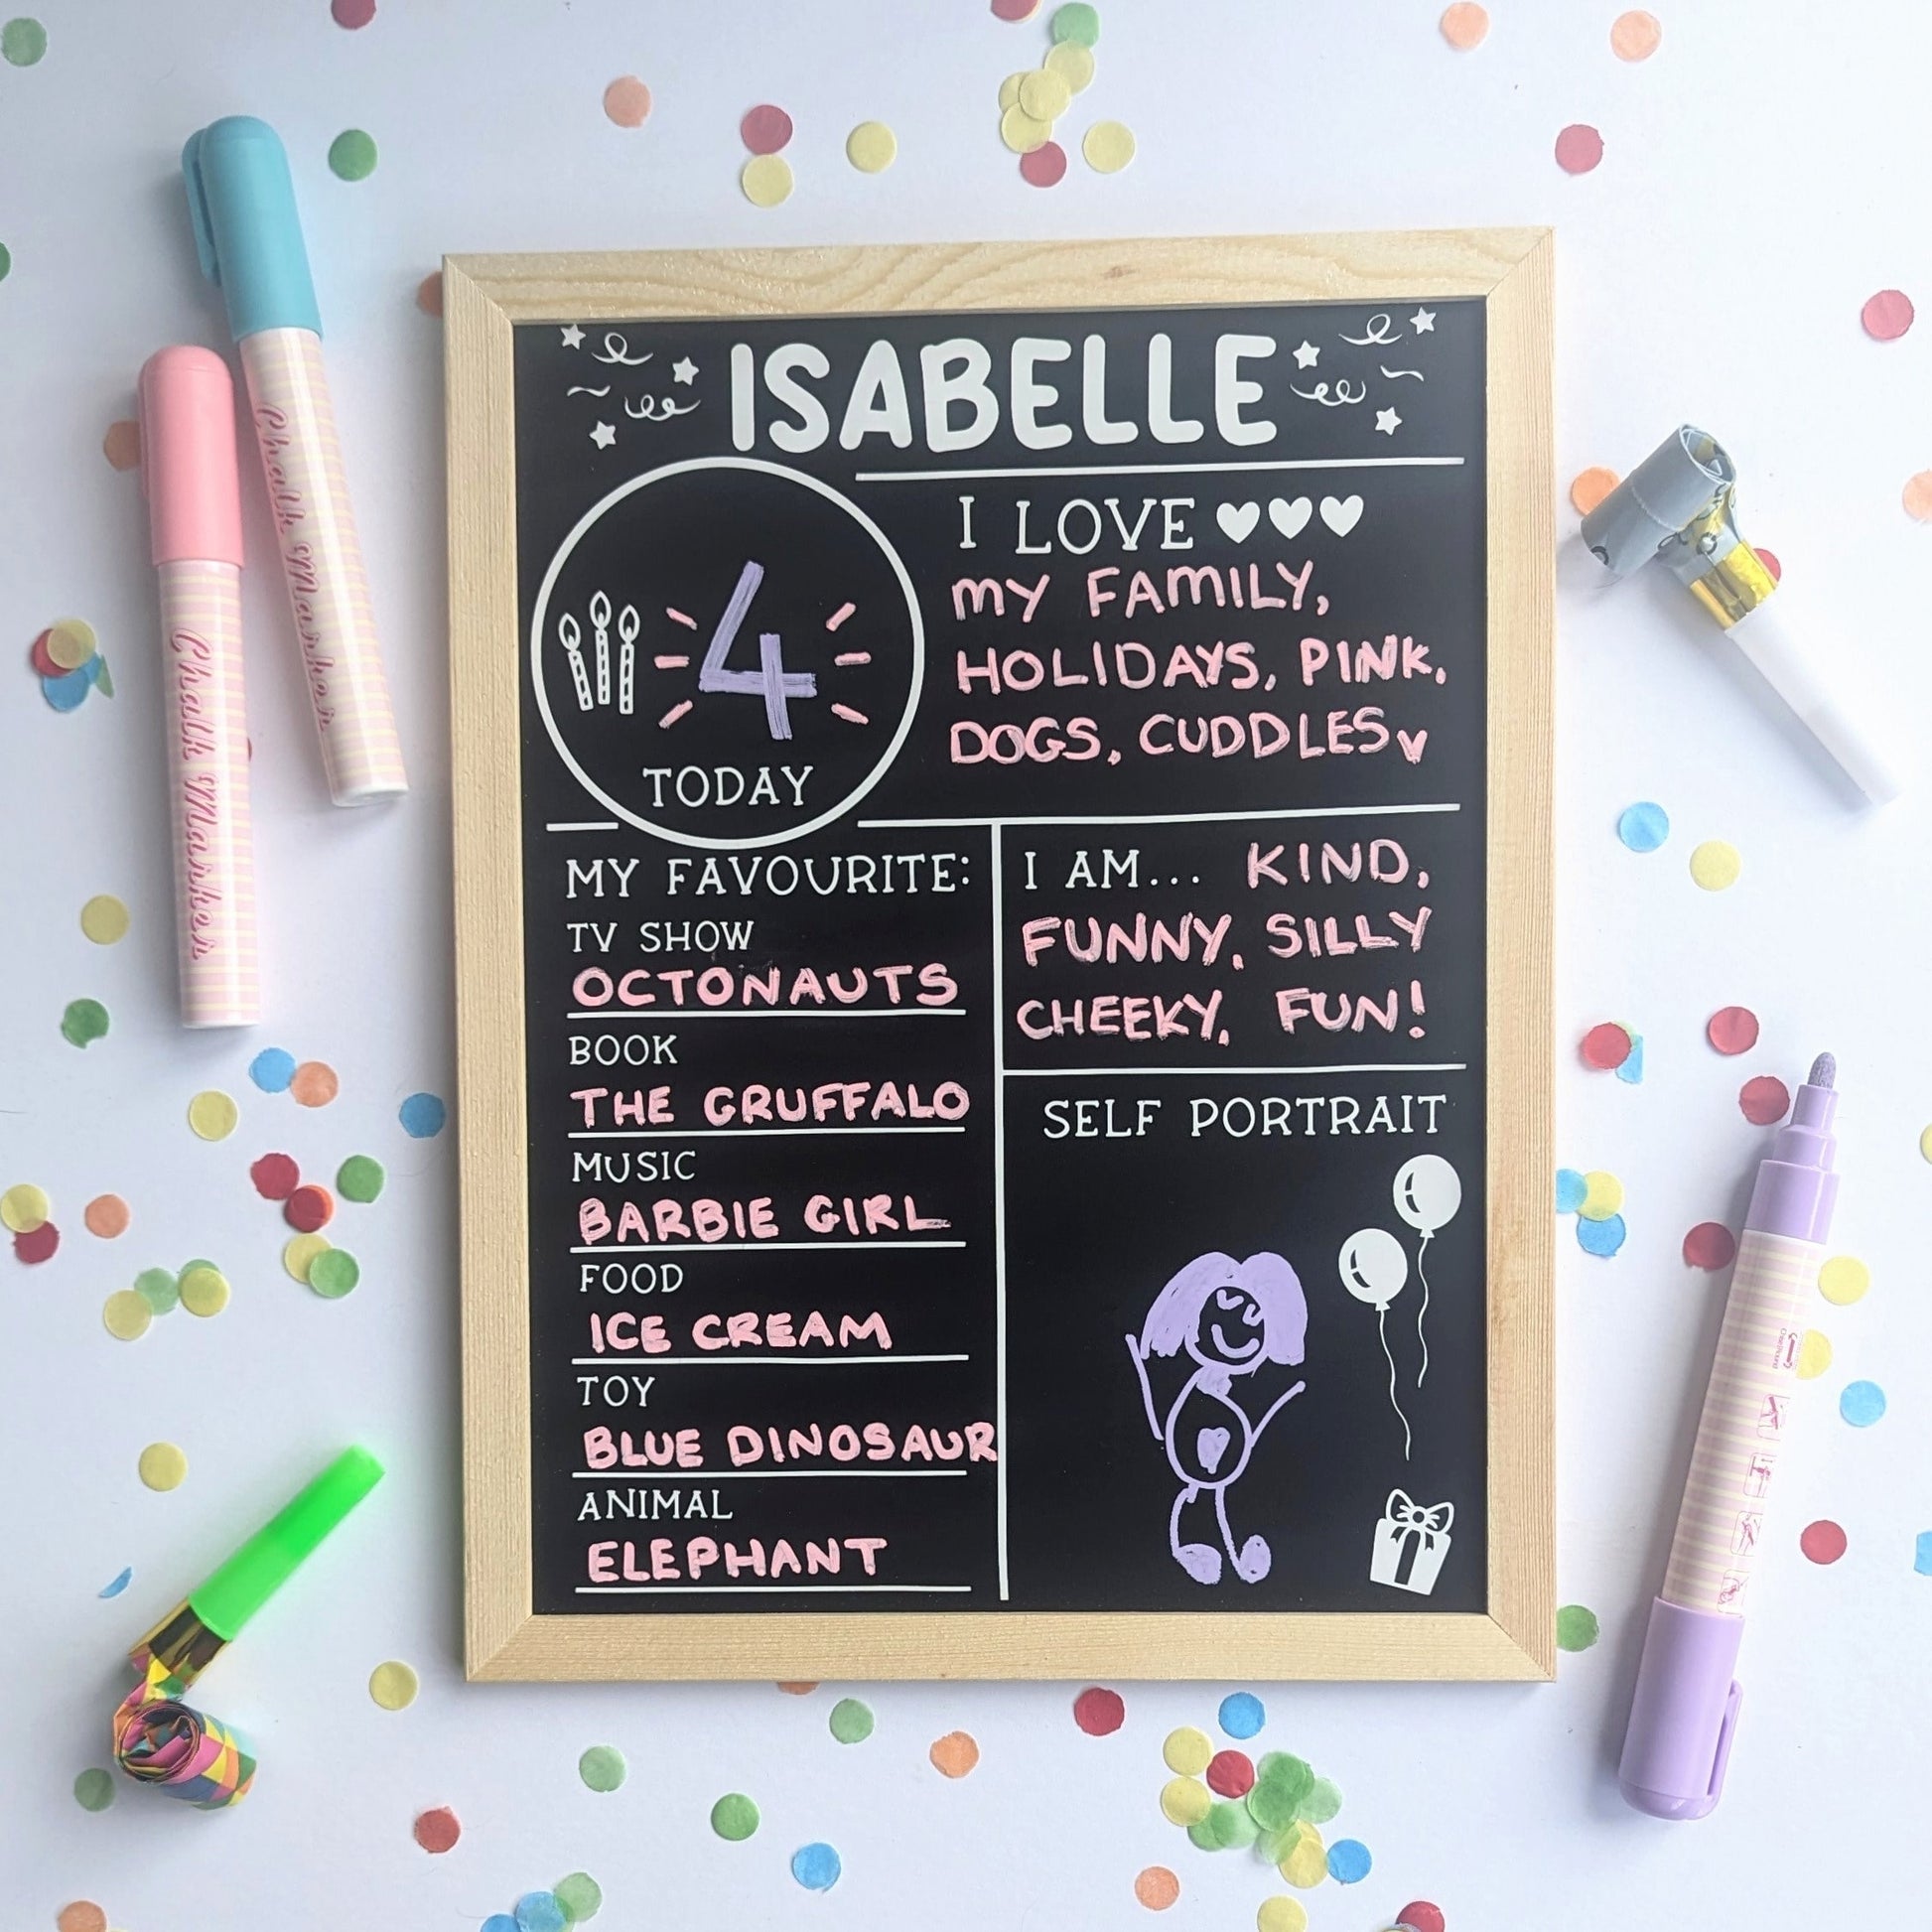 ISABELLE
4
TODAY
I LOVE
MY FAMILY,
HOLIDAYS, PINK,
DOGS, CUDDLES
MY FAVOURITE:
TV SHOW
OCTONAUTS
BOOK
THE GRUFFALO
MUSIC
BARBIE GIRL
FOOD
ICE CREAM
TOY
BLUE DINOSAUR
ANIMAL
ELEPHANT
I AM... KIND,
FUNNY, SILLY
CHEEKY, FUN!
SELF PORTRAIT
Chalk Marker
Chalk Marker